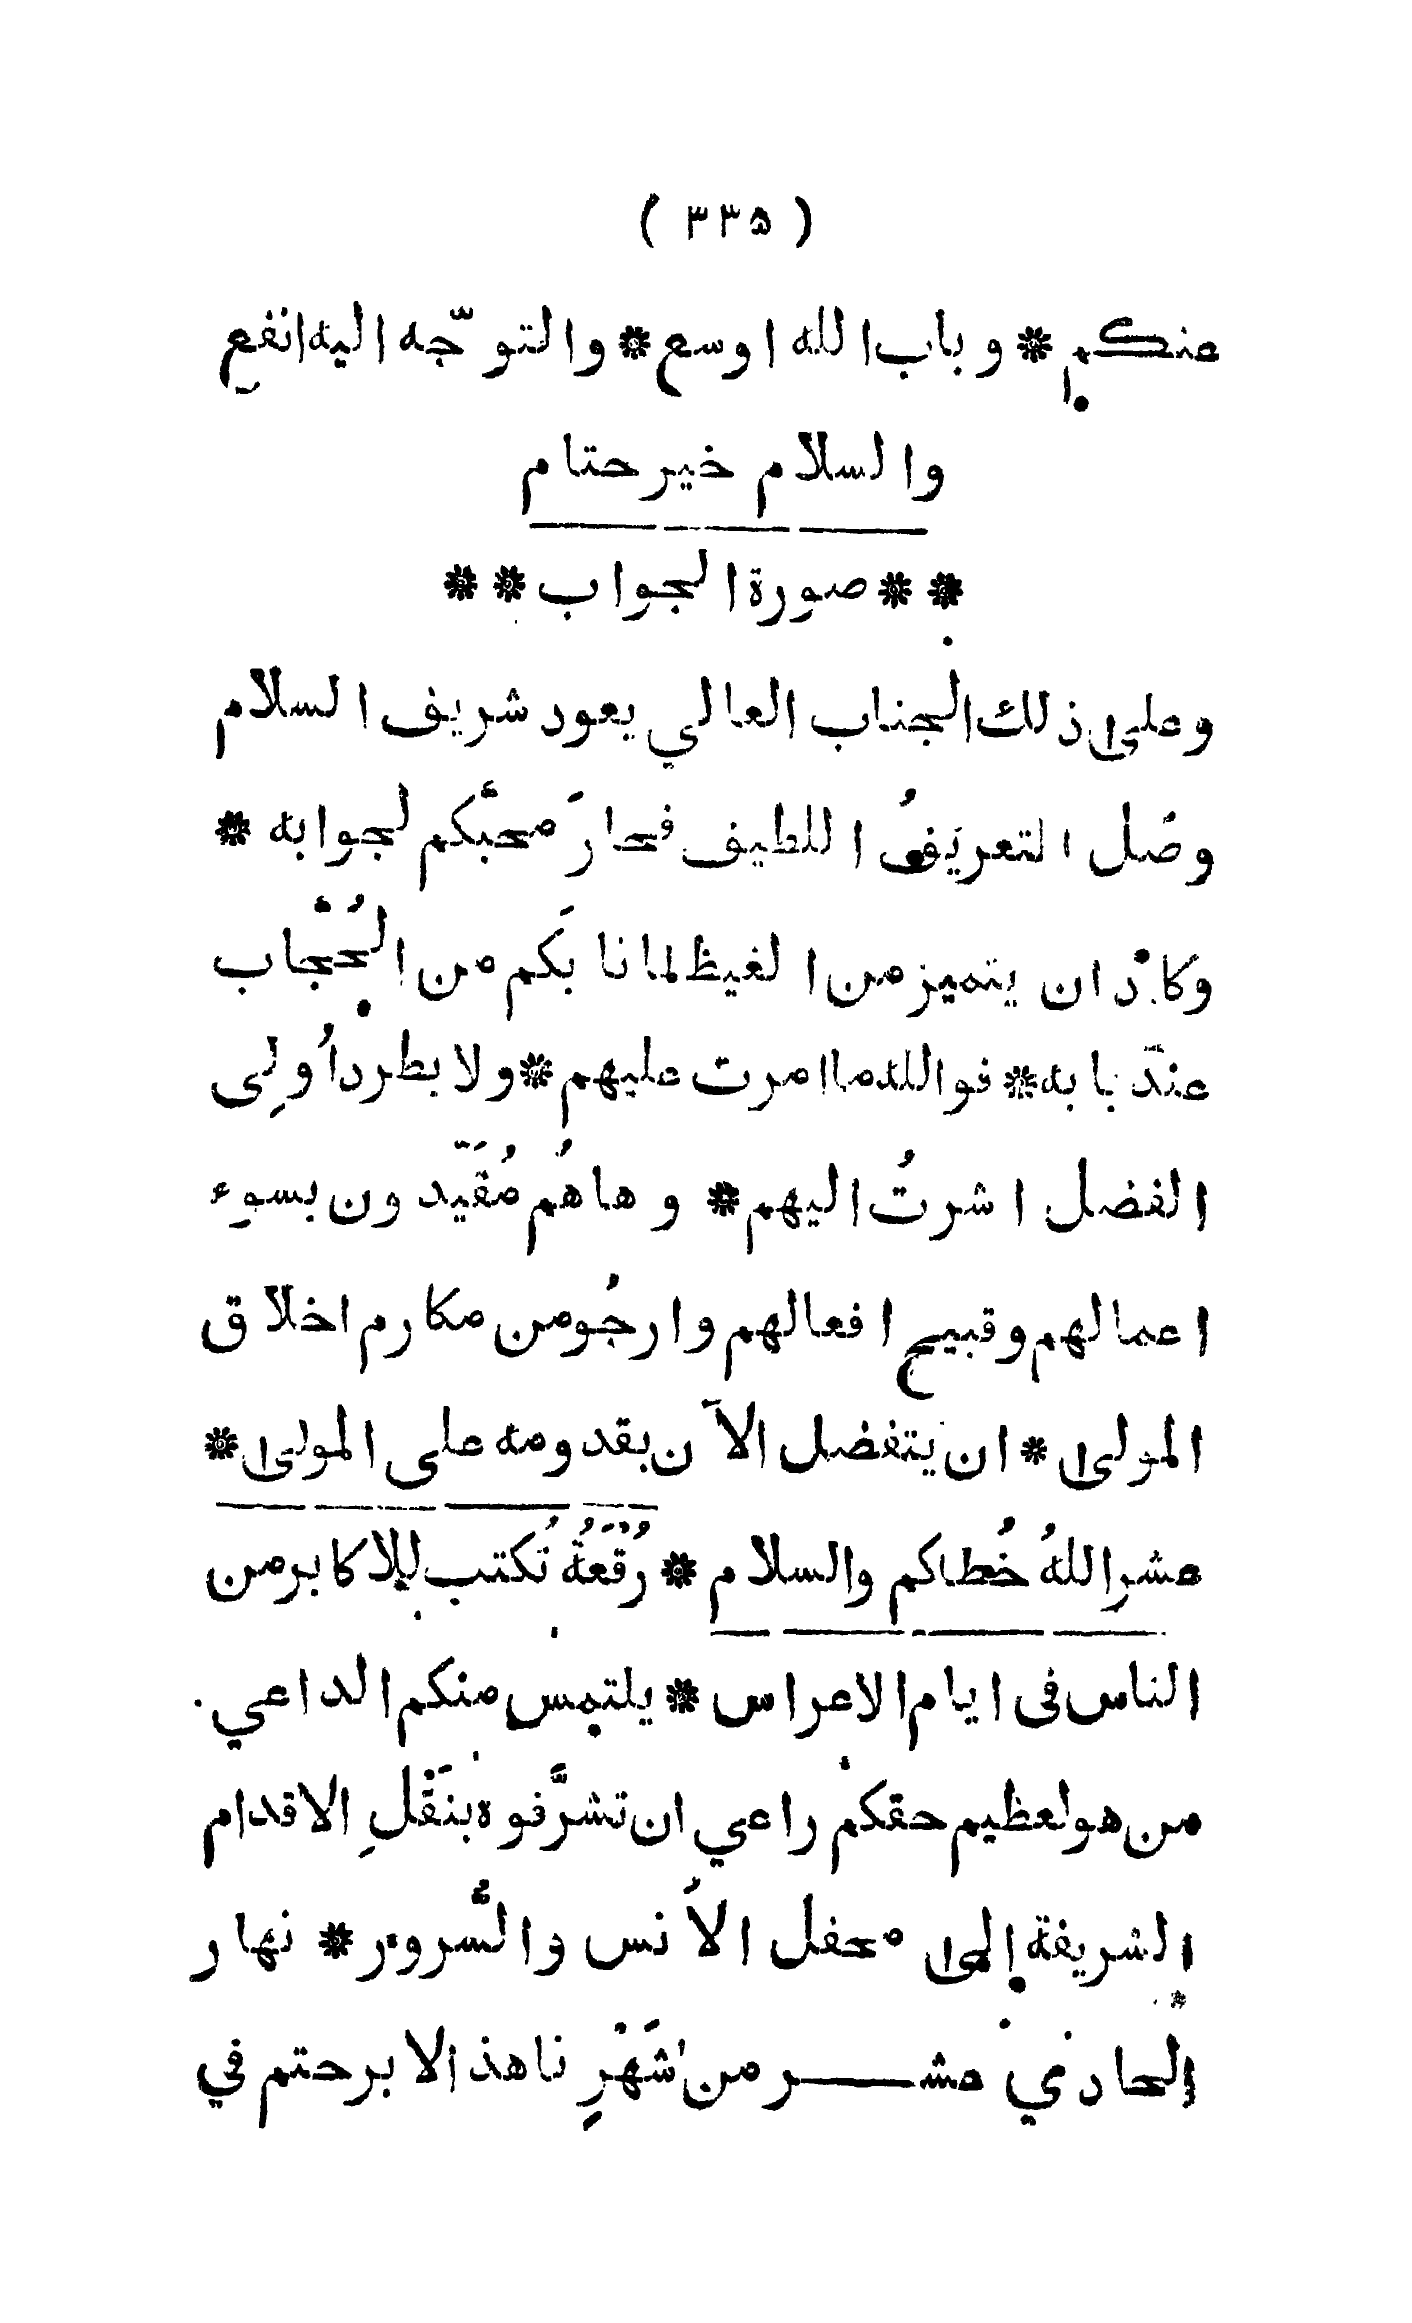 ( ٣٣٥ )
عنكم * وباب الله اوسع * والتوجّه اليه انفع
والسلام خير حتام
** صورة الجواب **
وعلى ذلك الجناب العالي يعود شريف السلام
وصل التعريفُ اللطيف فحارَ محبُّكم لجوابه *
وكاد ان يتميز من الغيظ لما نابَكم من الحُجَّاب
عندَ بابه * فوالله ما امرت عليهم * ولا بطرد اُولِى
الفضل اشرتُ اليهم * وهاهُم مُقَيَّدون بسوء
اعمالهم وقبيح افعالهم وارجُو من مكارم اخلاق
المولى * ان يتفضل الآن بقدومه على المولى *
عشر اللهُ خُطاكم والسلام * رُقْعَةُ تُكتب للاكابر من
الناس فى ايام الاعراس * يلتمس منكم الداعي
من هو لعظيم حقكم راعي ان تشرَّفوه بنَقْلِ الاقدام
الشريفة إلى محفل الأنس والسُّرور * نهار
الحادي عشر من شَهْرِنا هذا لا برحتم في